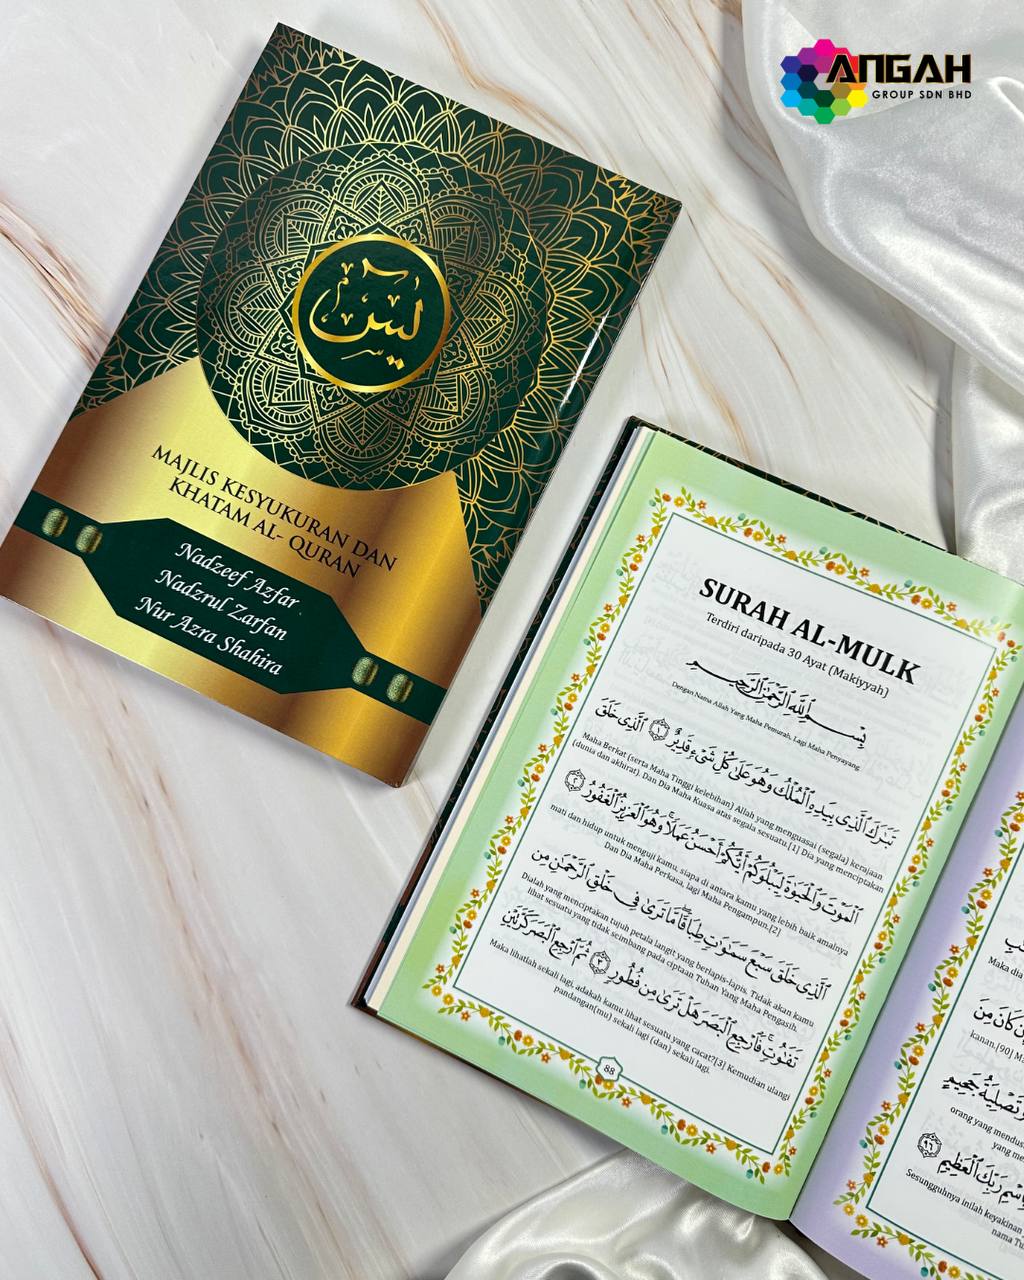 ANGAH
GROUP SDN BHD
يس
MAJLIS KESYUKURAN DAN
KHATAM AL- QURAN
Nadzeef Azfar
Nadzrul Zarfan
Nur Azra Shahira
SURAH AL-MULK
Terdiri daripada 30 Ayat (Makiyyah)
بِسْمِ ٱللَّهِ ٱلرَّحْمَٰنِ ٱلرَّحِيمِ
Dengan Nama Allah Yang Maha Pemurah, Lagi Maha Penyayang.
تَبَٰرَكَ ٱلَّذِى بِيَدِهِ ٱلْمُلْكُ وَهُوَ عَلَىٰ كُلِّ شَىْءٍ قَدِيرٌ ١ ٱلَّذِى خَلَقَ
Maha Berkat (serta Maha Tinggi kelebihan) Allah yang menguasai (segala) kerajaan
(dunia dan akhirat). Dan Dia Maha Kuasa atas segala sesuatu.[1] Dia yang menciptakan
ٱلْمَوْتَ وَٱلْحَيَوٰةَ لِيَبْلُوَكُمْ أَيُّكُمْ أَحْسَنُ عَمَلًا ۚ وَهُوَ ٱلْعَزِيزُ ٱلْغَفُورُ ٢
mati dan hidup untuk menguji kamu, siapa di antara kamu yang lebih baik amalnya
Dan Dia Maha Perkasa, lagi Maha Pengampun.[2]
ٱلَّذِى خَلَقَ سَبْعَ سَمَٰوَٰتٍ طِبَاقًا ۖ مَّا تَرَىٰ فِى خَلْقِ ٱلرَّحْمَٰنِ مِن
Dialah yang menciptakan tujuh petala langit yang berlapis-lapis. Tidak akan kamu
lihat sesuatu yang tidak seimbang pada ciptaan Tuhan Yang Maha Pengasih.
تَفَٰوُتٍ ۖ فَٱرْجِعِ ٱلْبَصَرَ هَلْ تَرَىٰ مِن فُطُورٍ ٣ ثُمَّ ٱرْجِعِ ٱلْبَصَرَ كَرَّتَيْنِ
Maka lihatlah sekali lagi, adakah kamu lihat sesuatu yang cacat?[3] Kemudian ulangi
pandangan(mu) sekali lagi (dan) sekali lagi.
88
Maka dia
كَانَ مِنَ
kanan.[90]
وَتَصْلِيَةُ جَحِيمٍ
orang yang mendus
yang me
بِٱسْمِ رَبِّكَ ٱلْعَظِيمِ ٩٦
Sesungguhnya inilah keyakinan
nama Tu